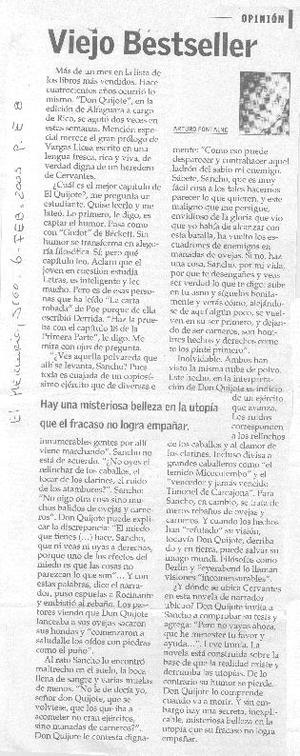 OPINIÓN
Viejo Bestseller
ARTURO FONTAINE
El Mercurio, Stgo 6-FEB-2005 P. E 8
Más de un mes en la lista de
los libros más vendidos. Hace
cuatrocientos años ocurrió lo
mismo. "Don Quijote", en la
edición de Alfaguara a cargo
de Rico, se agotó dos veces en
estas semanas. Mención espe-
cial merece el gran prólogo de
Vargas Llosa escrito en una
lengua fresca, rica y viva, de
verdad digna de un heredero
de Cervantes.
¿Cuál es el mejor capítulo de
El Quijote?, me pregunta un
estudiante. Quise leerlo y me
lató. Lo primero, le digo, es
captar el humor. Pasa como
con "Godot" de Beckett. Sin
humor se transforma en alego-
ría filosófica. Sí, pero qué
capítulo leo. Aclaro que el
joven en cuestión estudia
Letras, es inteligente y lee
mucho. Pero es de esas perso-
nas que ha leído "La carta
robada" de Poe porque de ella
escribió Derrida. "Haz la prue-
ba con el capítulo 18 de la
Primera Parte", le digo. Me
mira con ojos de pregunta.
"¿Ves aquella polvareda que
allí se levanta, Sancho? Pues
toda es cuajada de un copiosí-
simo ejército que de diversas e
Hay una misteriosa belleza en la utopía
que el fracaso no logra empañar.
innumerables gentes por allí
viene marchando". Sancho no
está de acuerdo. "¿No oyes el
relinchar de los caballos, el
tocar de los clarines, el ruido
de los atambores?". Sancho:
"No oigo otra cosa sino mu-
chos balidos de ovejas y carne-
ros". Don Quijote puede expli-
car la discrepancia: "El miedo
que tienes (...) hace, Sancho,
que ni veas ni oyas a derechas,
porque uno de los efectos del
miedo es que las cosas no
parezcan lo que son"... Y con
estas palabras, dice el narra-
dor, puso espuelas a Rocinante
y embistió al rebaño. Los pas-
tores viendo que Don Quijote
lanceaba a sus ovejas sacaron
sus hondas y "comenzaron a
saludalle los oídos con piedras
como el puño".
Al rato Sancho lo encontró
maltrecho en el suelo, la boca
llena de sangre y varias muelas
de menos. "No le decía yo,
señor don Quijote, que se
volviese, que los que iba a
acometer no eran ejércitos,
sino manadas de carneros?".
Don Quijote le contesta digna-
mente: "Como eso puede
desparecer y contrahacer aquel
ladrón del sabio mi enemigo.
Sábete, Sancho, que es muy
fácil cosa a los tales hacernos
parecer lo que quieren, y este
maligno que me persigue,
envidioso de la gloria que vio
que yo había de alcanzar con
esta batalla, ha vuelto los es-
cuadrones de enemigos en
manadas de ovejas. Si no, haz
una cosa, Sancho, por mi vida,
por que te desengañes y veas
ser verdad lo que te digo: sube
en tu asno y síguelos bonita-
mente y verás cómo, alejándo-
se de aquí algún poco, se vuel-
ven en su ser primero, y dejan-
do de ser carneros, son hom-
bres hechos y derechos como
yo te los pinté primero".
Inolvidable. Ambos han
visto la misma nube de polvo.
Este hecho, en la interpreta-
ción de Don Quijote es indicio
de un ejército
que avanza.
Los ruidos
corresponden
a los relinchos
de los caballos y al clamor de
los clarines. Incluso divisa a
grandes caballeros como "el
temido Micocolembo" y el
"vencedor y jamás vencido
Timonel de Carcajona". Para
Sancho, en cambio, se trata de
meros rebaños de ovejas y
carneros. Y cuando los hechos
han "refutado" su visión,
todavía Don Quijote, derriba-
do y en tierra, puede salvar su
mago mundi. Filósofos como
Berlin y Feyerabend lo llaman
visiones "inconmensurables".
¿Y dónde se ubica Cervantes
en esta novela de narrador
ubicuo? Don Quijote invita a
Sancho a comprobar su tesis y
agrega: "Pero no vayas ahora,
que he menester tu favor y
ayuda...". Leve ironía. La
novela está construida sobre la
base de que la realidad existe y
derrumba las utopías. De lo
contrario su humor se pierde.
Don Quijote lo comprende
cuando va a morir. Y sin em-
bargo hay una creencia, inexpli-
cable, misteriosa belleza en la
utopía que su fracaso no logra
empañar.